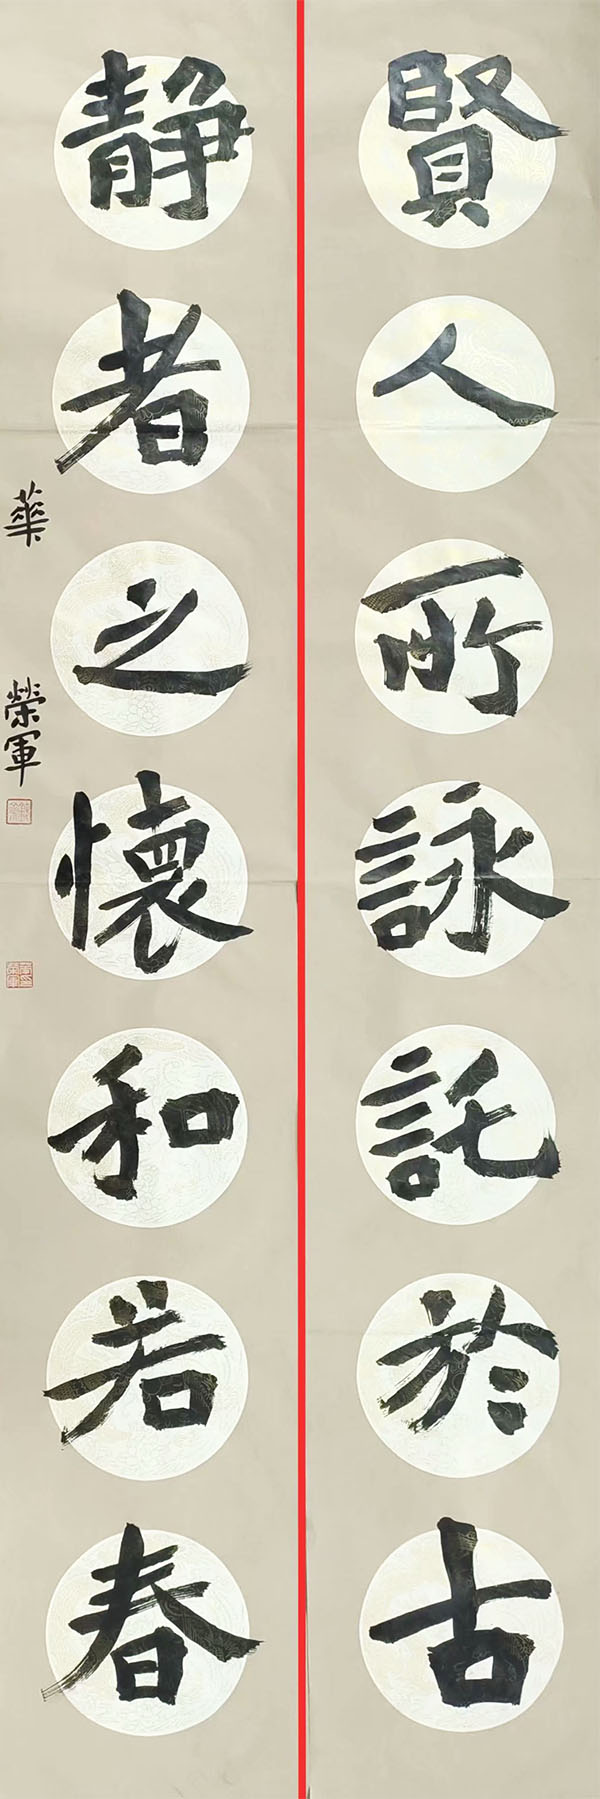 賢人所詠託於古
静者之懷和若春
華榮軍